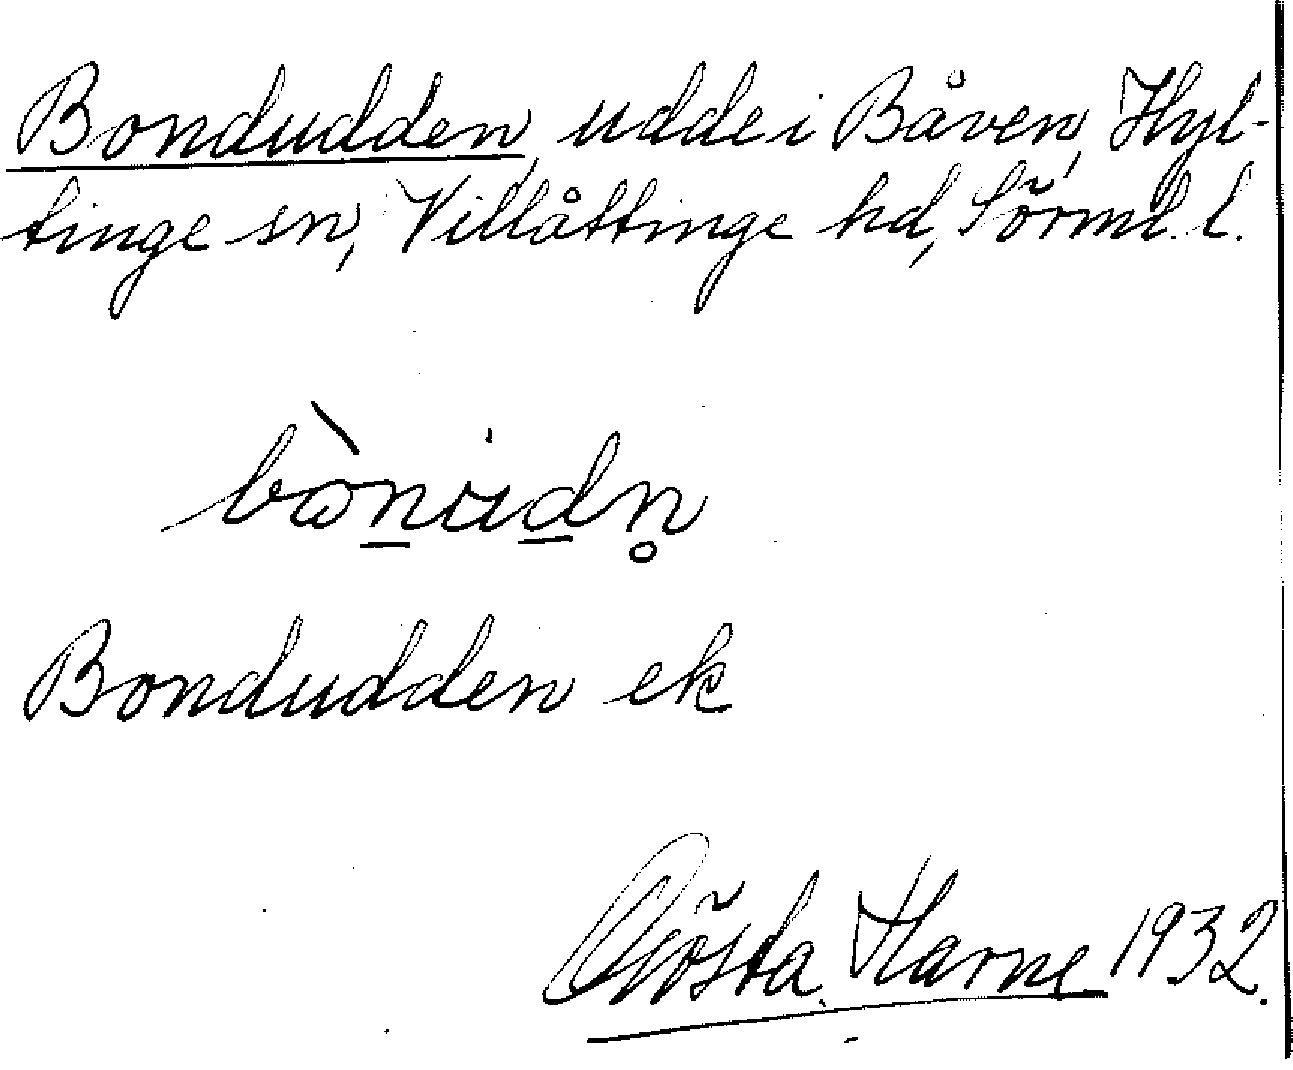 Bondudden, udde i Båven, Hyl-
tinge sn, Villåttinge hd, Sörml. l.
bòn̲ud̲n̥
Bondudden ek
Gösta Harne 1932.